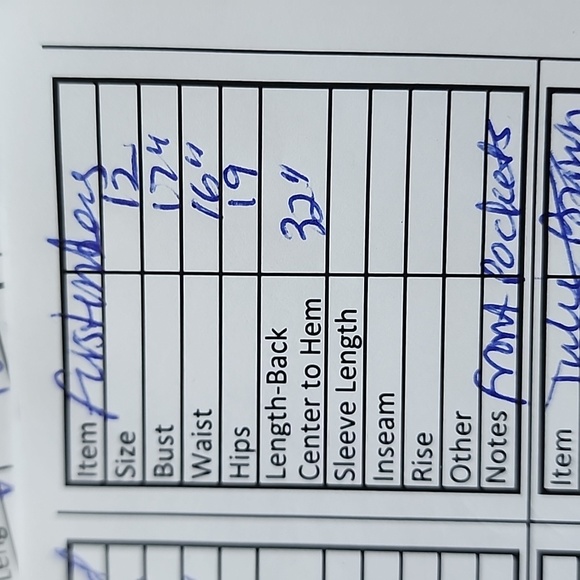 Item firstinbers
Size 12
Bust 17"
Waist 16"
Hips 19
Length-Back
Center to Hem 32"
Sleeve Length
Inseam
Rise
Other
Notes front Pockets
Item